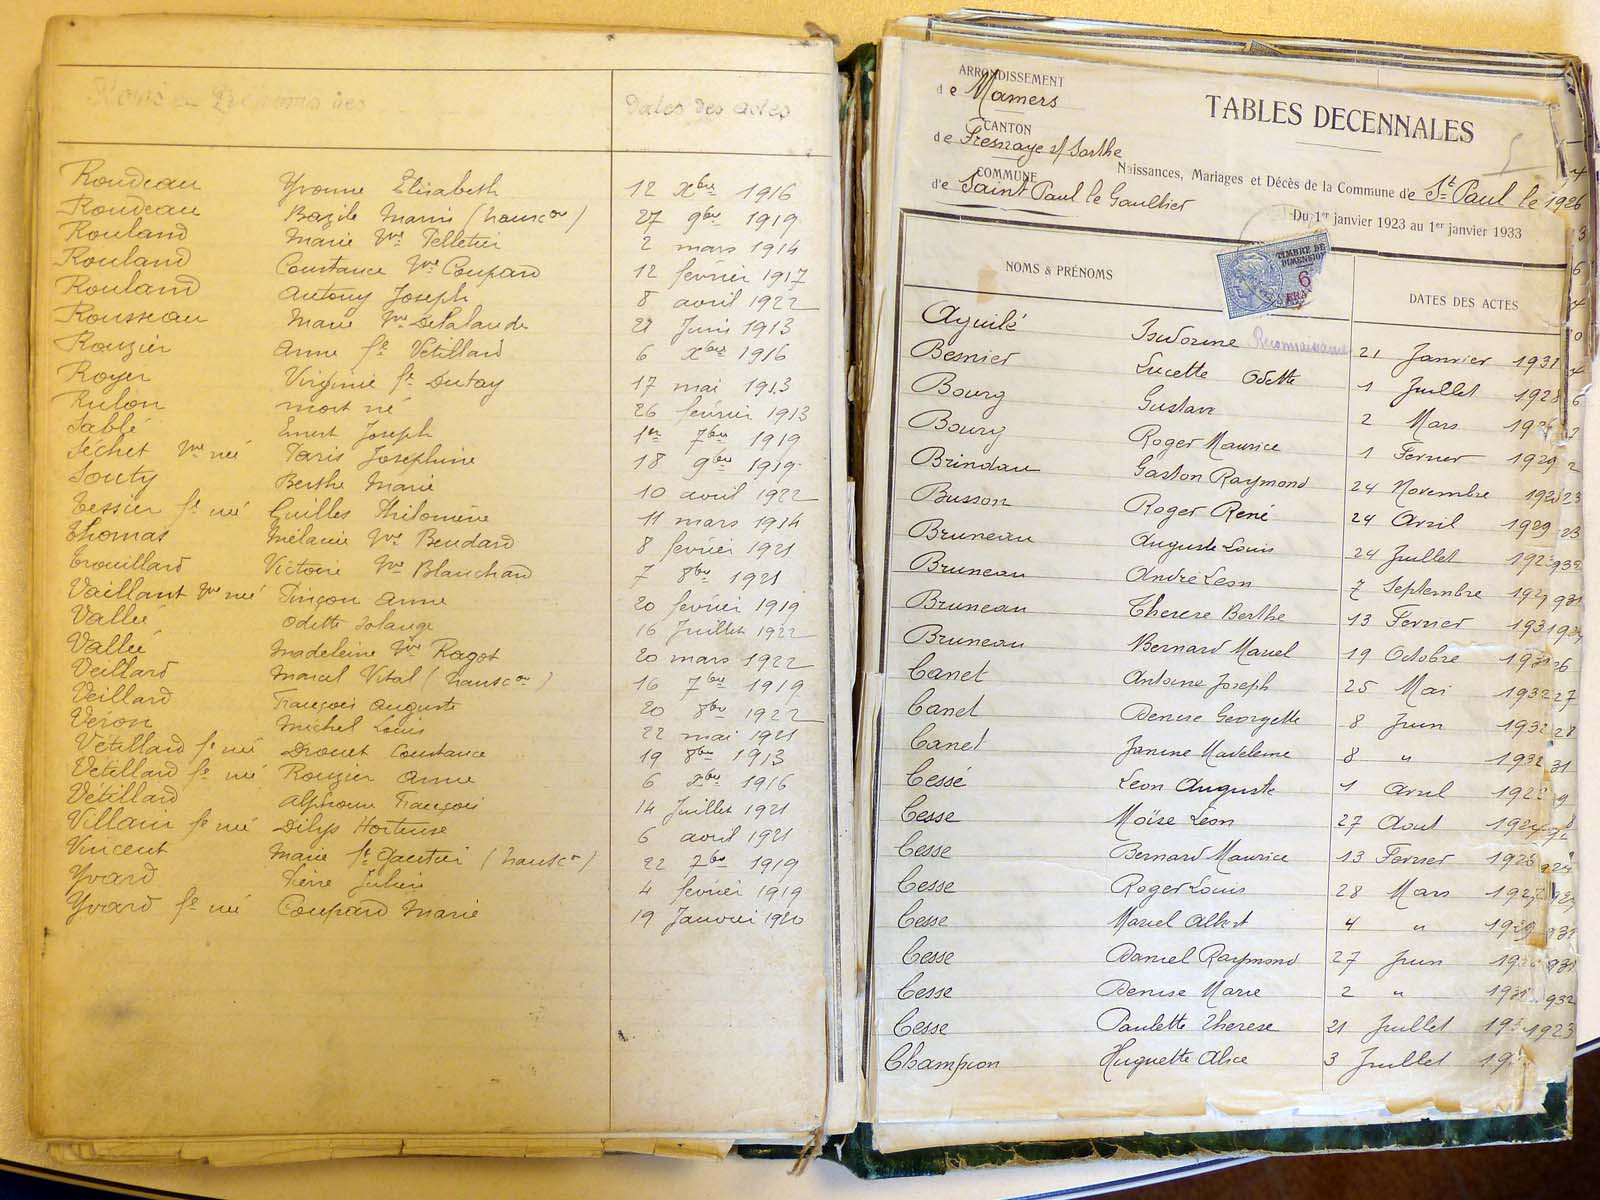 Noms et Prénoms des
Dates des actes
Rondeau Yvonne Elisabeth 12 Xbre 1916
Rondeau Bazile Marin 27 9bre 1919
Rouland Marie Vve Pelletier 2 mars 1914
Rouland Constance Vve Coupard 12 février 1917
Rouland Antony Joseph 8 avril 1922
Rousseau Marie Vve Delalande 21 Juin 1913
Rouzier Anne fe Vétillard 6 Xbre 1916
Royer Virginie fe Dutay 17 mai 1913
Rulon mort né 26 février 1913
Sablé Ernest Joseph 1er 7bre 1919
Séchet Vve née Paris Joséphine 18 9bre 1919
Souty Berthe Marie 10 avril 1922
Tessier fe née Guilles Philomène 11 mars 1914
Thomas Mélanie Vve Beudard 8 février 1921
Trouillard Victoire Vve Blanchard 7 8bre 1921
Vaillant Vve née Pinçon Anne 20 février 1919
Vallée Odette Solange 16 Juillet 1922
Vallée Madeleine Vve Ragot 20 mars 1922
Veillard Marcel Vital 16 7bre 1919
Veillard François Auguste 20 8bre 1922
Véron Michel Louis 22 mai 1921
Vétillard fe née Drouet Constance 19 8bre 1913
Vétillard fe née Rouzier Anne 6 Xbre 1916
Vétillard Alphonse François 14 Juillet 1921
Villain fe née Dilys Hortense 6 avril 1921
Vincent Marie fe Gautier 22 7bre 1919
Yvard Pierre Julien 4 février 1919
Yvard fe née Coupard Marie 19 Janvier 1920
ARRONDISSEMENT
de Mamers
CANTON
de Fresnaye s/ Sarthe
COMMUNE
de Saint Paul le Gaultier
TABLES DECENNALES
Naissances, Mariages et Décès de la Commune de St Paul le
Du 1er janvier 1923 au 1er janvier 1933
TIMBRE DE
DIMENSION
6
NOMS & PRÉNOMS
DATES DES ACTES
Aguilé Isidorine Reconnaissance 21 Janvier 1931
Besnier Lucette Odette 1 Juillet 1928
Bourg Gustave 2 Mars
Bourg Roger Maurice 1 Fevrier 1929
Brindau Gaston Raymond 24 Novembre
Busson Roger René 24 Avril 1929
Bruneau Auguste Louis 24 Juillet
Bruneau André Leon 7 Septembre
Bruneau Therese Berthe 13 Fevrier
Bruneau Bernard Marcel 19 Octobre
Canet Antoine Joseph 25 Mai 1932
Canet Denise Georgette 8 Juin 1932
Canet Janine Madeleine 8 " 1932
Cessé Leon Auguste 1 Avril
Cesse Moïse Leon 27 Aout
Cesse Bernard Maurice 13 Fevrier 1926
Cesse Roger Louis 28 Mars 1927
Cesse Marcel Albert 4 "
Cesse Daniel Raymond 27 Juin
Cesse Denise Marie 2 "
Cesse Paulette Therese 21 Juillet
Champion Huguette Alice 3 Juillet